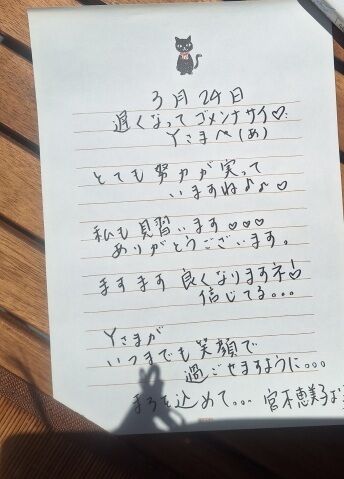 3月24日
遅くなってゴメンナサイ♡
Yさまへ(あ)
とても努力が実って
いますね♪♪♡
私も見習います♡♡♡
ありがとうございます。
ますます良くなりますネ
信じてる...
Yさまが
いつまでも笑顔で
過ごせますように...
を込めて... 宮本恵美子